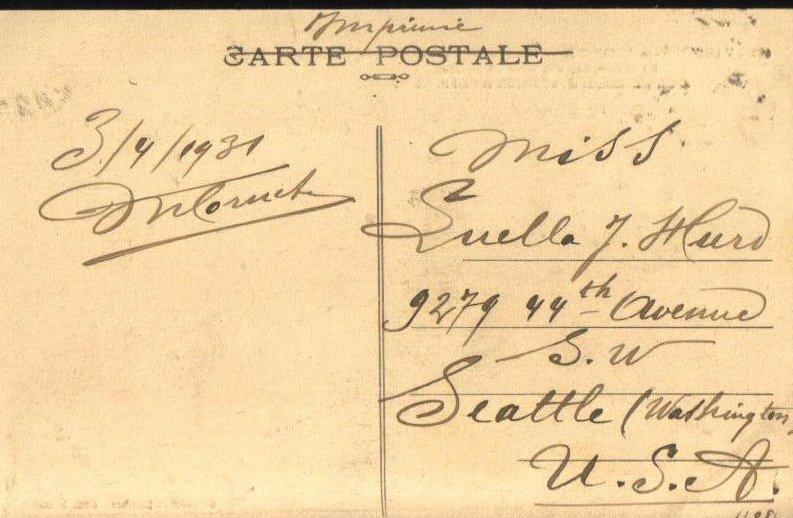 Imprimé
CARTE POSTALE
3/4/1931
Miss
Luella J. Hurd
9279 44th Avenue
S.W
Seattle (Washington)
U.S.A.